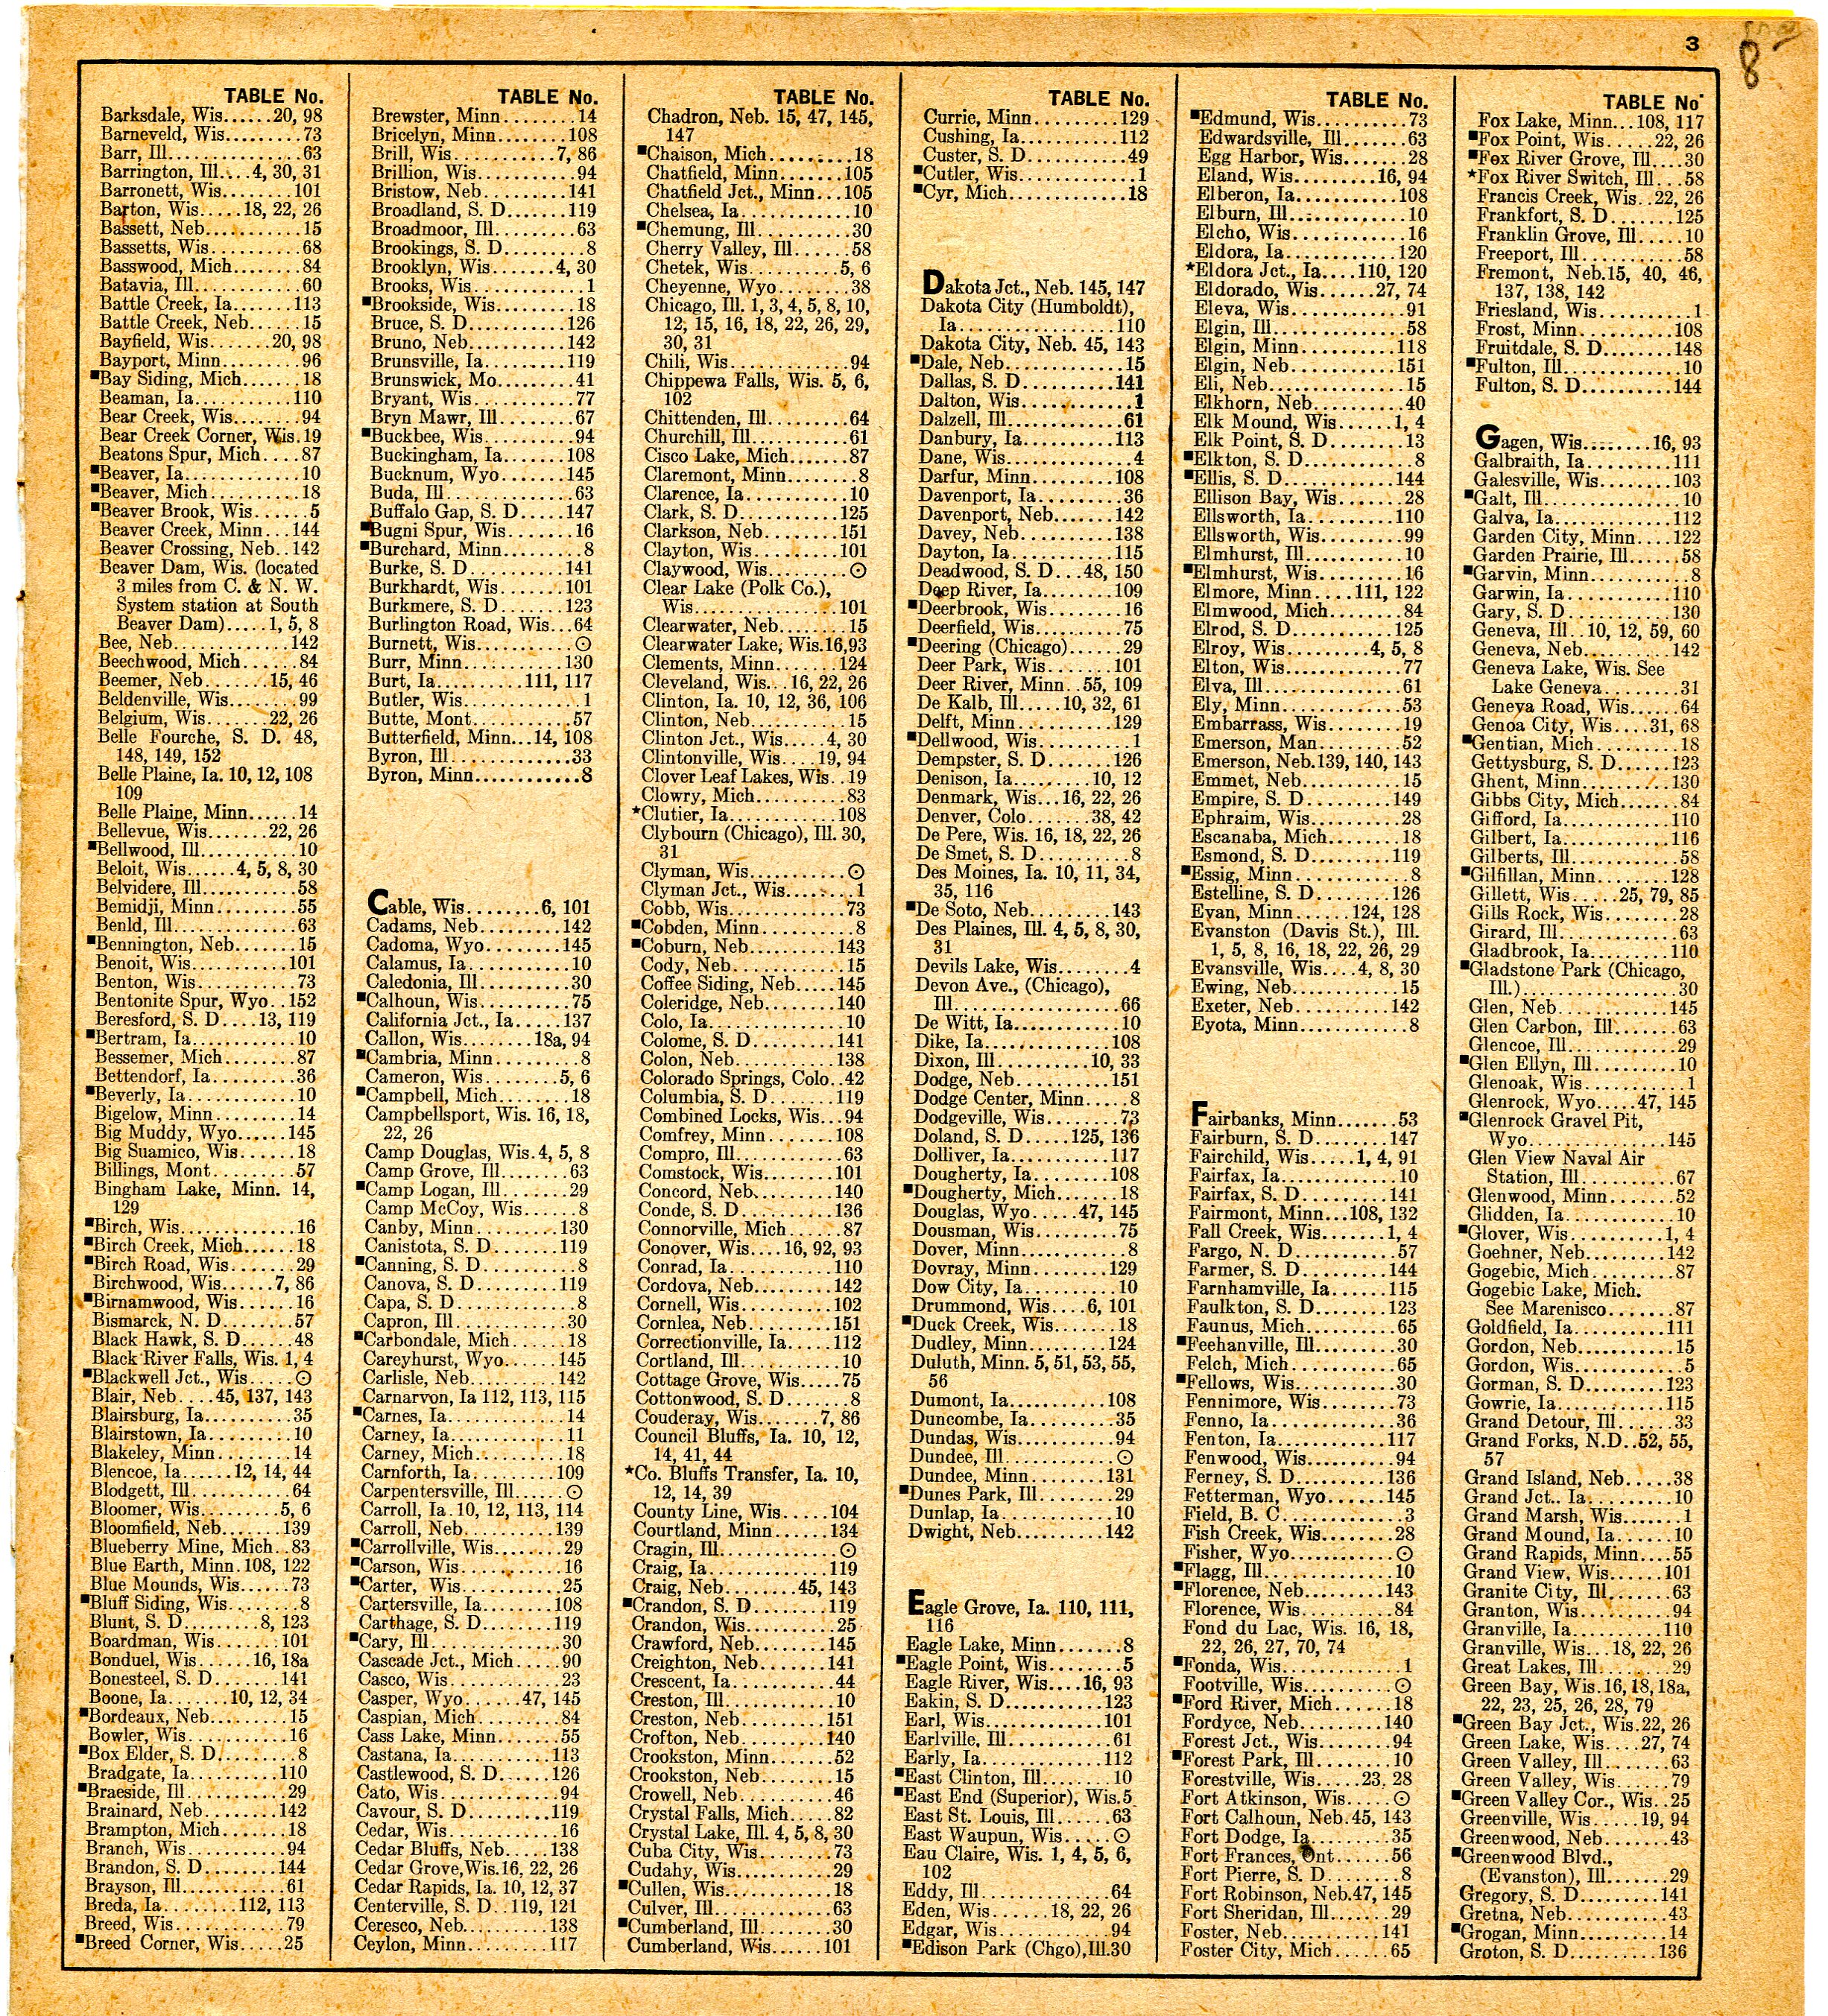 3
8
TABLE No.
Barksdale, Wis......20, 98
Barneveld, Wis.........73
Barr, Ill...............63
Barrington, Ill....4, 30, 31
Barronett, Wis........101
Barton, Wis.....18, 22, 26
Bassett, Neb...........15
Bassetts, Wis..........68
Basswood, Mich........84
Batavia, Ill............60
Battle Creek, Ia.......113
Battle Creek, Neb......15
Bayfield, Wis.......20, 98
Bayport, Minn.........96
■Bay Siding, Mich.......18
Beaman, Ia...........110
Bear Creek, Wis........94
Bear Creek Corner, Wis.19
Beatons Spur, Mich....87
■Beaver, Ia.............10
■Beaver, Mich..........18
■Beaver Brook, Wis......5
Beaver Creek, Minn...144
Beaver Crossing, Neb..142
Beaver Dam, Wis. (located
3 miles from C. & N. W.
System station at South
Beaver Dam).....1, 5, 8
Bee, Neb.............142
Beechwood, Mich......84
Beemer, Neb.......15, 46
Beldenville, Wis........99
Belgium, Wis.......22, 26
Belle Fourche, S. D. 48,
148, 149, 152
Belle Plaine, Ia. 10, 12, 108
109
Belle Plaine, Minn......14
Bellevue, Wis.......22, 26
■Bellwood, Ill...........10
Beloit, Wis......4, 5, 8, 30
Belvidere, Ill...........58
Bemidji, Minn.........55
Benld, Ill..............63
■Bennington, Neb.......15
Benoit, Wis...........101
Benton, Wis...........73
Bentonite Spur, Wyo..152
Beresford, S. D....13, 119
■Bertram, Ia............10
Bessemer, Mich........87
Bettendorf, Ia..........36
■Beverly, Ia.............10
Bigelow, Minn.........14
Big Muddy, Wyo......145
Big Suamico, Wis.......18
Billings, Mont..........57
Bingham Lake, Minn. 14,
129
■Birch, Wis.............16
■Birch Creek, Mich......18
■Birch Road, Wis........29
Birchwood, Wis......7, 86
■Birnamwood, Wis......16
Bismarck, N. D.........57
Black Hawk, S. D......48
Black River Falls, Wis. 1, 4
■Blackwell Jct., Wis.....⊙
Blair, Neb....45, 137, 143
Blairsburg, Ia..........35
Blairstown, Ia..........10
Blakeley, Minn.........14
Blencoe, Ia......12, 14, 44
Blodgett, Ill............64
Bloomer, Wis.........5, 6
Bloomfield, Neb.......139
Blueberry Mine, Mich..83
Blue Earth, Minn.108, 122
Blue Mounds, Wis......73
■Bluff Siding, Wis........8
Blunt, S. D.........8, 123
Boardman, Wis.......101
Bonduel, Wis......16, 18a
Bonesteel, S. D........141
Boone, Ia.......10, 12, 34
■Bordeaux, Neb.........15
Bowler, Wis............16
■Box Elder, S. D.........8
Bradgate, Ia..........110
■Braeside, Ill............29
Brainard, Neb.........142
Brampton, Mich.......18
Branch, Wis...........94
Brandon, S. D........144
Brayson, Ill............61
Breda, Ia.........112, 113
Breed, Wis.............79
■Breed Corner, Wis.....25
TABLE No.
Brewster, Minn........14
Bricelyn, Minn........108
Brill, Wis...........7, 86
Brillion, Wis...........94
Bristow, Neb..........141
Broadland, S. D.......119
Broadmoor, Ill.........63
Brookings, S. D.........8
Brooklyn, Wis.......4, 30
Brooks, Wis............1
■Brookside, Wis.........18
Bruce, S. D...........126
Bruno, Neb...........142
Brunsville, Ia.........119
Brunswick, Mo........41
Bryant, Wis............77
Bryn Mawr, Ill.........67
■Buckbee, Wis..........94
Buckingham, Ia.......108
Bucknum, Wyo.......145
Buda, Ill..............63
Buffalo Gap, S. D.....147
■Bugni Spur, Wis........16
■Burchard, Minn.........8
Burke, S. D...........141
Burkhardt, Wis.......101
Burkmere, S. D.......123
Burlington Road, Wis...64
Burnett, Wis...........⊙
Burr, Minn...........130
Burt, Ia..........111, 117
Butler, Wis.............1
Butte, Mont...........57
Butterfield, Minn...14, 108
Byron, Ill..............33
Byron, Minn............8
Cable, Wis.........6, 101
Cadams, Neb.........142
Cadoma, Wyo........145
Calamus, Ia...........10
Caledonia, Ill..........30
■Calhoun, Wis..........75
California Jct., Ia.....137
Callon, Wis........18a, 94
■Cambria, Minn.........8
Cameron, Wis........5, 6
■Campbell, Mich........18
Campbellsport, Wis. 16, 18,
22, 26
Camp Douglas, Wis. 4, 5, 8
Camp Grove, Ill........63
■Camp Logan, Ill........29
Camp McCoy, Wis......8
Canby, Minn.........130
Canistota, S. D.......119
■Canning, S. D..........8
Canova, S. D.........119
Capa, S. D.............8
Capron, Ill............30
■Carbondale, Mich......18
Careyhurst, Wyo......145
Carlisle, Neb.........142
Carnarvon, Ia 112, 113, 115
■Carnes, Ia.............14
Carney, Ia.............11
Carney, Mich..........18
Carnforth, Ia.........109
Carpentersville, Ill......⊙
Carroll, Ia. 10, 12, 113, 114
Carroll, Neb..........139
■Carrollville, Wis........29
■Carson, Wis............16
■Carter, Wis............25
Cartersville, Ia........108
Carthage, S. D........119
■Cary, Ill...............30
Cascade Jct., Mich.....90
Casco, Wis.............23
Casper, Wyo......47, 145
Caspian, Mich.........84
Cass Lake, Minn.......55
Castana, Ia...........113
Castlewood, S. D......126
Cato, Wis..............94
Cavour, S. D.........119
Cedar, Wis.............16
Cedar Bluffs, Neb.....138
Cedar Grove, Wis.16, 22, 26
Cedar Rapids, Ia. 10, 12, 37
Centerville, S. D..119, 121
Ceresco, Neb..........138
Ceylon, Minn.........117
TABLE No.
Chadron, Neb. 15, 47, 145,
147
■Chaison, Mich..........18
Chatfield, Minn.......105
Chatfield Jct., Minn...105
Chelsea, Ia............10
■Chemung, Ill...........30
Cherry Valley, Ill.......58
Chetek, Wis..........5, 6
Cheyenne, Wyo........38
Chicago, Ill. 1, 3, 4, 5, 8, 10,
12, 15, 16, 18, 22, 26, 29,
30, 31
Chili, Wis.............94
Chippewa Falls, Wis. 5, 6,
102
Chittenden, Ill.........64
Churchill, Ill...........61
Cisco Lake, Mich.......87
Claremont, Minn.......8
Clarence, Ia...........10
Clark, S. D...........125
Clarkson, Neb........151
Clayton, Wis.........101
Claywood, Wis.........⊙
Clear Lake (Polk Co.),
Wis................101
Clearwater, Neb.......15
Clearwater Lake, Wis.16,93
Clements, Minn.......124
Cleveland, Wis...16, 22, 26
Clinton, Ia. 10, 12, 36, 106
Clinton, Neb..........15
Clinton Jct., Wis.....4, 30
Clintonville, Wis....19, 94
Clover Leaf Lakes, Wis..19
Clowry, Mich..........83
★Clutier, Ia............108
Clybourn (Chicago), Ill. 30,
31
Clyman, Wis...........⊙
Clyman Jct., Wis........1
Cobb, Wis.............73
■Cobden, Minn..........8
■Coburn, Neb.........143
Cody, Neb.............15
Coffee Siding, Neb.....145
Coleridge, Neb........140
Colo, Ia...............10
Colome, S. D.........141
Colon, Neb...........138
Colorado Springs, Colo..42
Columbia, S. D.......119
Combined Locks, Wis...94
Comfrey, Minn.......108
Compro, Ill............63
Comstock, Wis.......101
Concord, Neb.........140
Conde, S. D..........136
Connorville, Mich......87
Conover, Wis....16, 92, 93
Conrad, Ia...........110
Cordova, Neb.........142
Cornell, Wis..........102
Cornlea, Neb.........151
Correctionville, Ia.....112
Cortland, Ill...........10
Cottage Grove, Wis.....75
Cottonwood, S. D.......8
Couderay, Wis.......7, 86
Council Bluffs, Ia. 10, 12,
14, 41, 44
★Co. Bluffs Transfer, Ia. 10,
12, 14, 39
County Line, Wis.....104
Courtland, Minn......134
Cragin, Ill.............⊙
Craig, Ia.............119
Craig, Neb........45, 143
■Crandon, S. D........119
Crandon, Wis..........25
Crawford, Neb........145
Creighton, Neb.......141
Crescent, Ia...........44
Creston, Ill............10
Creston, Neb.........151
Crofton, Neb.........140
Crookston, Minn.......52
Crookston, Neb........15
Crowell, Neb...........46
Crystal Falls, Mich.....82
Crystal Lake, Ill. 4, 5, 8, 30
Cuba City, Wis........73
Cudahy, Wis...........29
■Cullen, Wis............18
Culver, Ill.............63
■Cumberland, Ill........30
Cumberland, Wis.....101
TABLE No.
Currie, Minn.........129
Cushing, Ia..........112
Custer, S. D...........49
■Cutler, Wis.............1
■Cyr, Mich.............18
Dakota Jct., Neb. 145, 147
Dakota City (Humboldt),
Ia.................110
Dakota City, Neb. 45, 143
■Dale, Neb.............15
Dallas, S. D..........141
Dalton, Wis............1
Dalzell, Ill............61
Danbury, Ia..........113
Dane, Wis..............4
Darfur, Minn.........108
Davenport, Ia.........36
Davenport, Neb......142
Davey, Neb..........138
Dayton, Ia...........115
Deadwood, S. D...48, 150
Deep River, Ia........109
■Deerbrook, Wis........16
Deerfield, Wis.........75
■Deering (Chicago)......29
Deer Park, Wis.......101
Deer River, Minn..55, 109
De Kalb, Ill.....10, 32, 61
Delft, Minn..........129
■Dellwood, Wis..........1
Dempster, S. D.......126
Denison, Ia........10, 12
Denmark, Wis...16, 22, 26
Denver, Colo......38, 42
De Pere, Wis. 16, 18, 22, 26
De Smet, S. D..........8
Des Moines, Ia. 10, 11, 34,
35, 116
■De Soto, Neb.........143
Des Plaines, Ill. 4, 5, 8, 30,
31
Devils Lake, Wis........4
Devon Ave., (Chicago),
Ill..................66
De Witt, Ia............10
Dike, Ia.............108
Dixon, Ill.........10, 33
Dodge, Neb..........151
Dodge Center, Minn.....8
Dodgeville, Wis........73
Doland, S. D.....125, 136
Dolliver, Ia..........117
Dougherty, Ia........108
■Dougherty, Mich.......18
Douglas, Wyo.....47, 145
Dousman, Wis.........75
Dover, Minn...........8
Dovray, Minn........129
Dow City, Ia..........10
Drummond, Wis....6, 101
■Duck Creek, Wis.......18
Dudley, Minn........124
Duluth, Minn. 5, 51, 53, 55,
56
Dumont, Ia..........108
Duncombe, Ia.........35
Dundas, Wis..........94
Dundee, Ill............⊙
Dundee, Minn........131
■Dunes Park, Ill........29
Dunlap, Ia............10
Dwight, Neb.........142
Eagle Grove, Ia. 110, 111,
116
Eagle Lake, Minn.......8
■Eagle Point, Wis........5
Eagle River, Wis....16, 93
Eakin, S. D..........123
Earl, Wis............101
Earlville, Ill...........61
Early, Ia............112
■East Clinton, Ill........10
■East End (Superior), Wis.5
East St. Louis, Ill......63
East Waupun, Wis.....⊙
Eau Claire, Wis. 1, 4, 5, 6,
102
Eddy, Ill..............64
Eden, Wis......18, 22, 26
Edgar, Wis............94
■Edison Park (Chgo),Ill.30
TABLE No.
■Edmund, Wis..........73
Edwardsville, Ill.......63
Egg Harbor, Wis.......28
Eland, Wis.........16, 94
Elberon, Ia...........108
Elburn, Ill.............10
Elcho, Wis.............16
Eldora, Ia............120
★Eldora Jct., Ia....110, 120
Eldorado, Wis......27, 74
Eleva, Wis.............91
Elgin, Ill..............58
Elgin, Minn..........118
Elgin, Neb...........151
Eli, Neb...............15
Elkhorn, Neb..........40
Elk Mound, Wis......1, 4
Elk Point, S. D.........13
■Elkton, S. D............8
■Ellis, S. D............144
Ellison Bay, Wis.......28
Ellsworth, Ia.........110
Ellsworth, Wis.........99
Elmhurst, Ill..........10
■Elmhurst, Wis.........16
Elmore, Minn....111, 122
Elmwood, Mich........84
Elrod, S. D...........125
Elroy, Wis.........4, 5, 8
Elton, Wis.............77
Elva, Ill...............61
Ely, Minn.............53
Embarrass, Wis........19
Emerson, Man.........52
Emerson, Neb.139, 140, 143
Emmet, Neb...........15
Empire, S. D.........149
Ephraim, Wis..........28
Escanaba, Mich........18
Esmond, S. D.........119
■Essig, Minn............8
Estelline, S. D........126
Evan, Minn......124, 128
Evanston (Davis St.), Ill.
1, 5, 8, 16, 18, 22, 26, 29
Evansville, Wis....4, 8, 30
Ewing, Neb............15
Exeter, Neb..........142
Eyota, Minn............8
Fairbanks, Minn.......53
Fairburn, S. D........147
Fairchild, Wis.....1, 4, 91
Fairfax, Ia............10
Fairfax, S. D.........141
Fairmont, Minn...108, 132
Fall Creek, Wis.......1, 4
Fargo, N. D...........57
Farmer, S. D.........144
Farnhamville, Ia......115
Faulkton, S. D........123
Faunus, Mich..........65
■Feehanville, Ill.........30
Felch, Mich............65
■Fellows, Wis...........30
Fennimore, Wis........73
Fenno, Ia..............36
Fenton, Ia............117
Fenwood, Wis.........94
Ferney, S. D.........136
Fetterman, Wyo......145
Field, B. C.............3
Fish Creek, Wis........28
Fisher, Wyo...........⊙
■Flagg, Ill..............10
■Florence, Neb........143
Florence, Wis..........84
Fond du Lac, Wis. 16, 18,
22, 26, 27, 70, 74
■Fonda, Wis.............1
Footville, Wis..........⊙
■Ford River, Mich.......18
Fordyce, Neb.........140
Forest Jct., Wis........94
■Forest Park, Ill........10
Forestville, Wis.....23, 28
Fort Atkinson, Wis.....⊙
Fort Calhoun, Neb.45, 143
Fort Dodge, Ia.........35
Fort Frances, Ont......56
Fort Pierre, S. D........8
Fort Robinson, Neb.47, 145
Fort Sheridan, Ill......29
Foster, Neb..........141
Foster City, Mich......65
TABLE No
Fox Lake, Minn...108, 117
■Fox Point, Wis.....22, 26
■Fox River Grove, Ill....30
★Fox River Switch, Ill...58
Francis Creek, Wis..22, 26
Frankfort, S. D.......125
Franklin Grove, Ill.....10
Freeport, Ill...........58
Fremont, Neb.15, 40, 46,
137, 138, 142
Friesland, Wis..........1
Frost, Minn..........108
Fruitdale, S. D.......148
■Fulton, Ill.............10
Fulton, S. D..........144
Gagen, Wis........16, 93
Galbraith, Ia.........111
Galesville, Wis........103
■Galt, Ill...............10
Galva, Ia............112
Garden City, Minn....122
Garden Prairie, Ill.....58
■Garvin, Minn...........8
Garwin, Ia...........110
Gary, S. D...........130
Geneva, Ill..10, 12, 59, 60
Geneva, Neb.........142
Geneva Lake, Wis. See
Lake Geneva........31
Geneva Road, Wis......64
Genoa City, Wis....31, 68
■Gentian, Mich.........18
Gettysburg, S. D......123
Ghent, Minn.........130
Gibbs City, Mich.......84
Gifford, Ia...........110
Gilbert, Ia...........116
Gilberts, Ill............58
■Gilfillan, Minn........128
Gillett, Wis.....25, 79, 85
Gills Rock, Wis........28
Girard, Ill.............63
Gladbrook, Ia........110
■Gladstone Park (Chicago,
Ill.).................30
Glen, Neb............145
Glen Carbon, Ill.......63
Glencoe, Ill............29
■Glen Ellyn, Ill.........10
Glenoak, Wis...........1
Glenrock, Wyo.....47, 145
■Glenrock Gravel Pit,
Wyo...............145
Glen View Naval Air
Station, Ill..........67
Glenwood, Minn.......52
Glidden, Ia............10
■Glover, Wis..........1, 4
Goehner, Neb........142
Gogebic, Mich.........87
Gogebic Lake, Mich.
See Marenisco.......87
Goldfield, Ia..........111
Gordon, Neb..........15
Gordon, Wis............5
Gorman, S. D........123
Gowrie, Ia...........115
Grand Detour, Ill......33
Grand Forks, N.D..52, 55,
57
Grand Island, Neb.....38
Grand Jct.. Ia.........10
Grand Marsh, Wis......1
Grand Mound, Ia......10
Grand Rapids, Minn....55
Grand View, Wis......101
Granite City, Ill.......63
Granton, Wis..........94
Granville, Ia.........110
Granville, Wis...18, 22, 26
Great Lakes, Ill........29
Green Bay, Wis.16, 18, 18a,
22, 23, 25, 26, 28, 79
■Green Bay Jct., Wis.22, 26
Green Lake, Wis....27, 74
Green Valley, Ill.......63
Green Valley, Wis......79
■Green Valley Cor., Wis..25
Greenville, Wis.....19, 94
Greenwood, Neb.......43
■Greenwood Blvd.,
(Evanston), Ill.......29
Gregory, S. D........141
Gretna, Neb...........43
■Grogan, Minn.........14
Groton, S. D.........136